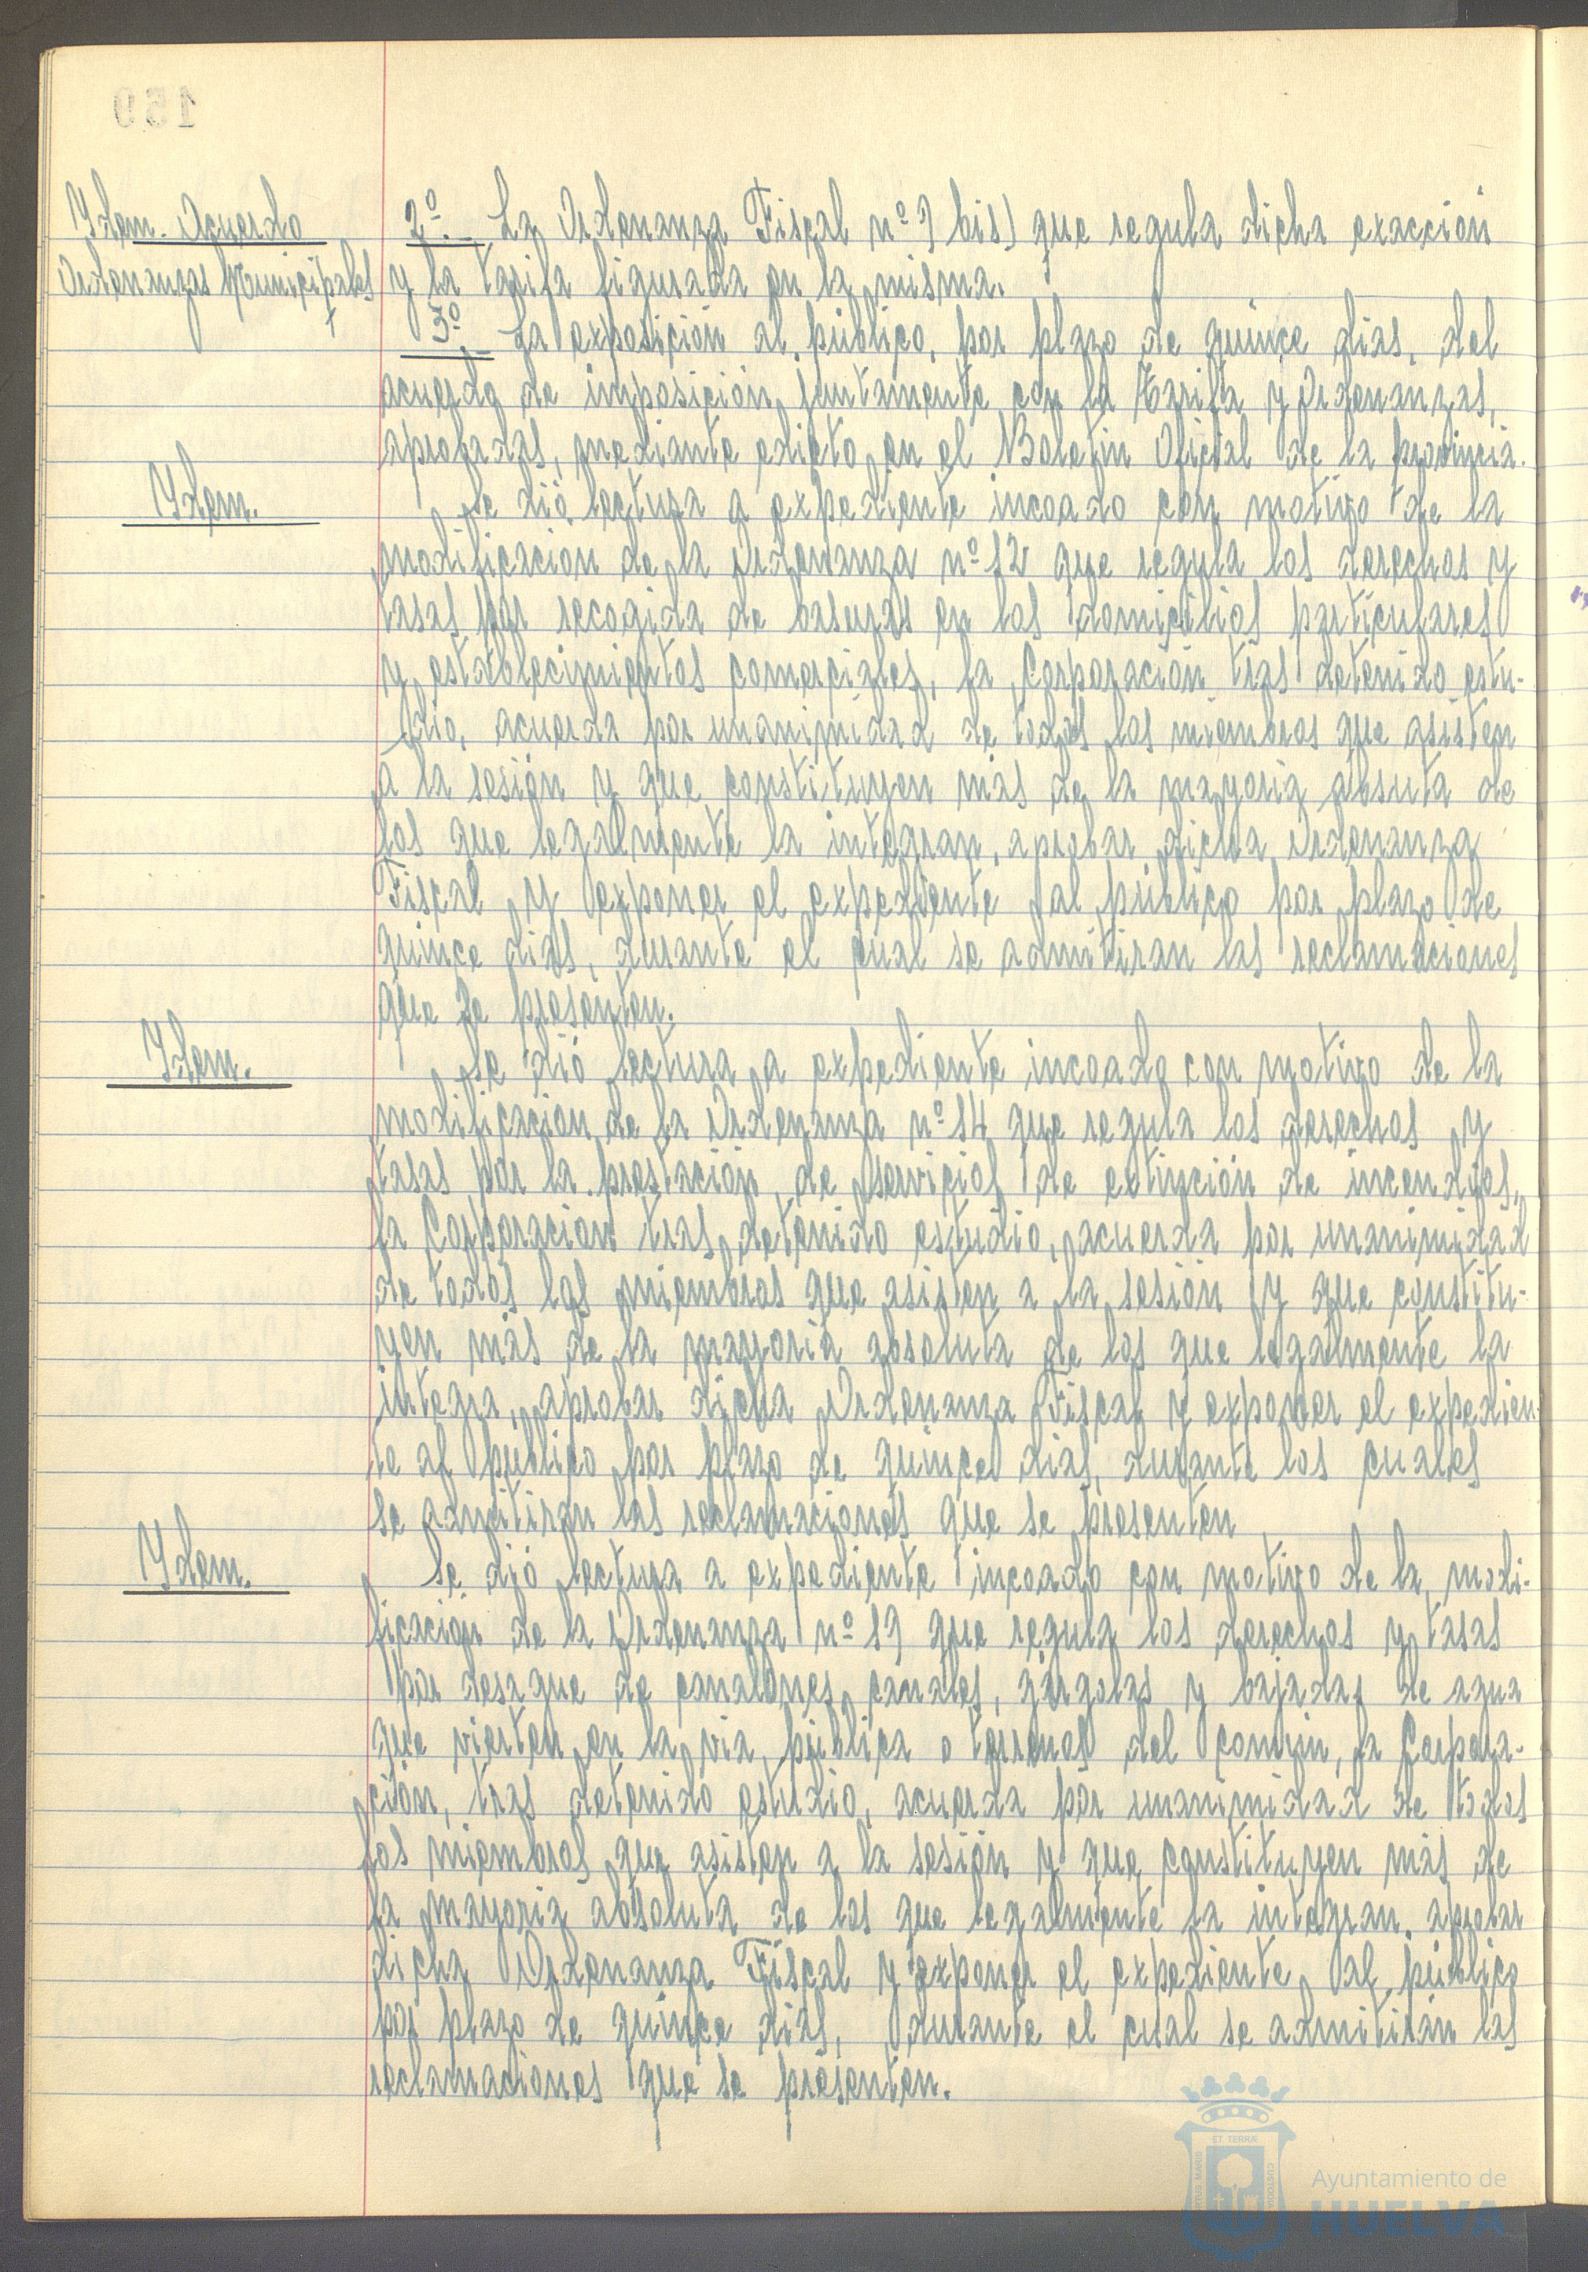 Idem. Acuerdo
Ordenanzas Municipales
2º.- La Ordenanza Fiscal nº 9 bis) que regula dicha exacción
y la tarifa figurada en la misma.
3º.- La exposición al público, por plazo de quince dias, del
acuerdo de imposición juntamente con la Tarifa y Ordenanzas,
aprobadas, mediante edicto en el Boletin Oficial de la provincia.
Idem.
Se dió lectura a expediente incoado con motivo de la
modificacion de la Ordenanza nº 12 que regula los derechos y
tasas por recogida de basuras en los domicilios particulares
y establecimientos comerciales, la Corporación tras detenido estu-
dio, acuerda por unanimidad de todos los miembros que asisten
a la sesión y que constituyen más de la mayoria absuta de
los que legalmente la integran, aprobar dicha Ordenanza
Fiscal y exponer el expediente al público por plazo de
quince dias, duante el cual se admitiran las reclamaciones
que se presenten.
Idem.
Se dió lectura a expediente incoado con motivo de la
modificacion de la Ordenanza nº 14 que regula los derechos y
tasas por la prestación de servicios de extinción de incendios,
la Corporacion tras detenido estudio, acuerda por unanimidad
de todos los miembros que asisten a la sesión y que constitu-
yen más de la mayoria absoluta de los que legalmente la
integra, aprobar dicha Ordenanza Fiscal y exponer el expedien-
te al público por plazo de quince dias, durante los cuales
se admitiran las reclamaciones que se presenten
Idem.
Se dió lectura a expediente incoado con motivo de la modi-
ficación de la Ordenanza nº 19 que regula los derechos y tasas
por desague de canalones, canales, gárgolas y bajadas de agua
que vierten en la via pública o terrenos del común, la Corpora-
ción, tras detenido estudio, acuerda por unanimidad de todos
los miembros que asisten a la sesión y que constituyen más de
la mayoria absoluta de los que legalmente la integran, aprobar
dicha Ordenanza Fiscal y exponer el expediente al público
por plazo de quince dias, durante el cual se admitirán las
reclamaciones que se presenten.
ET TERRÆ
Ayuntamiento de
HUELVA